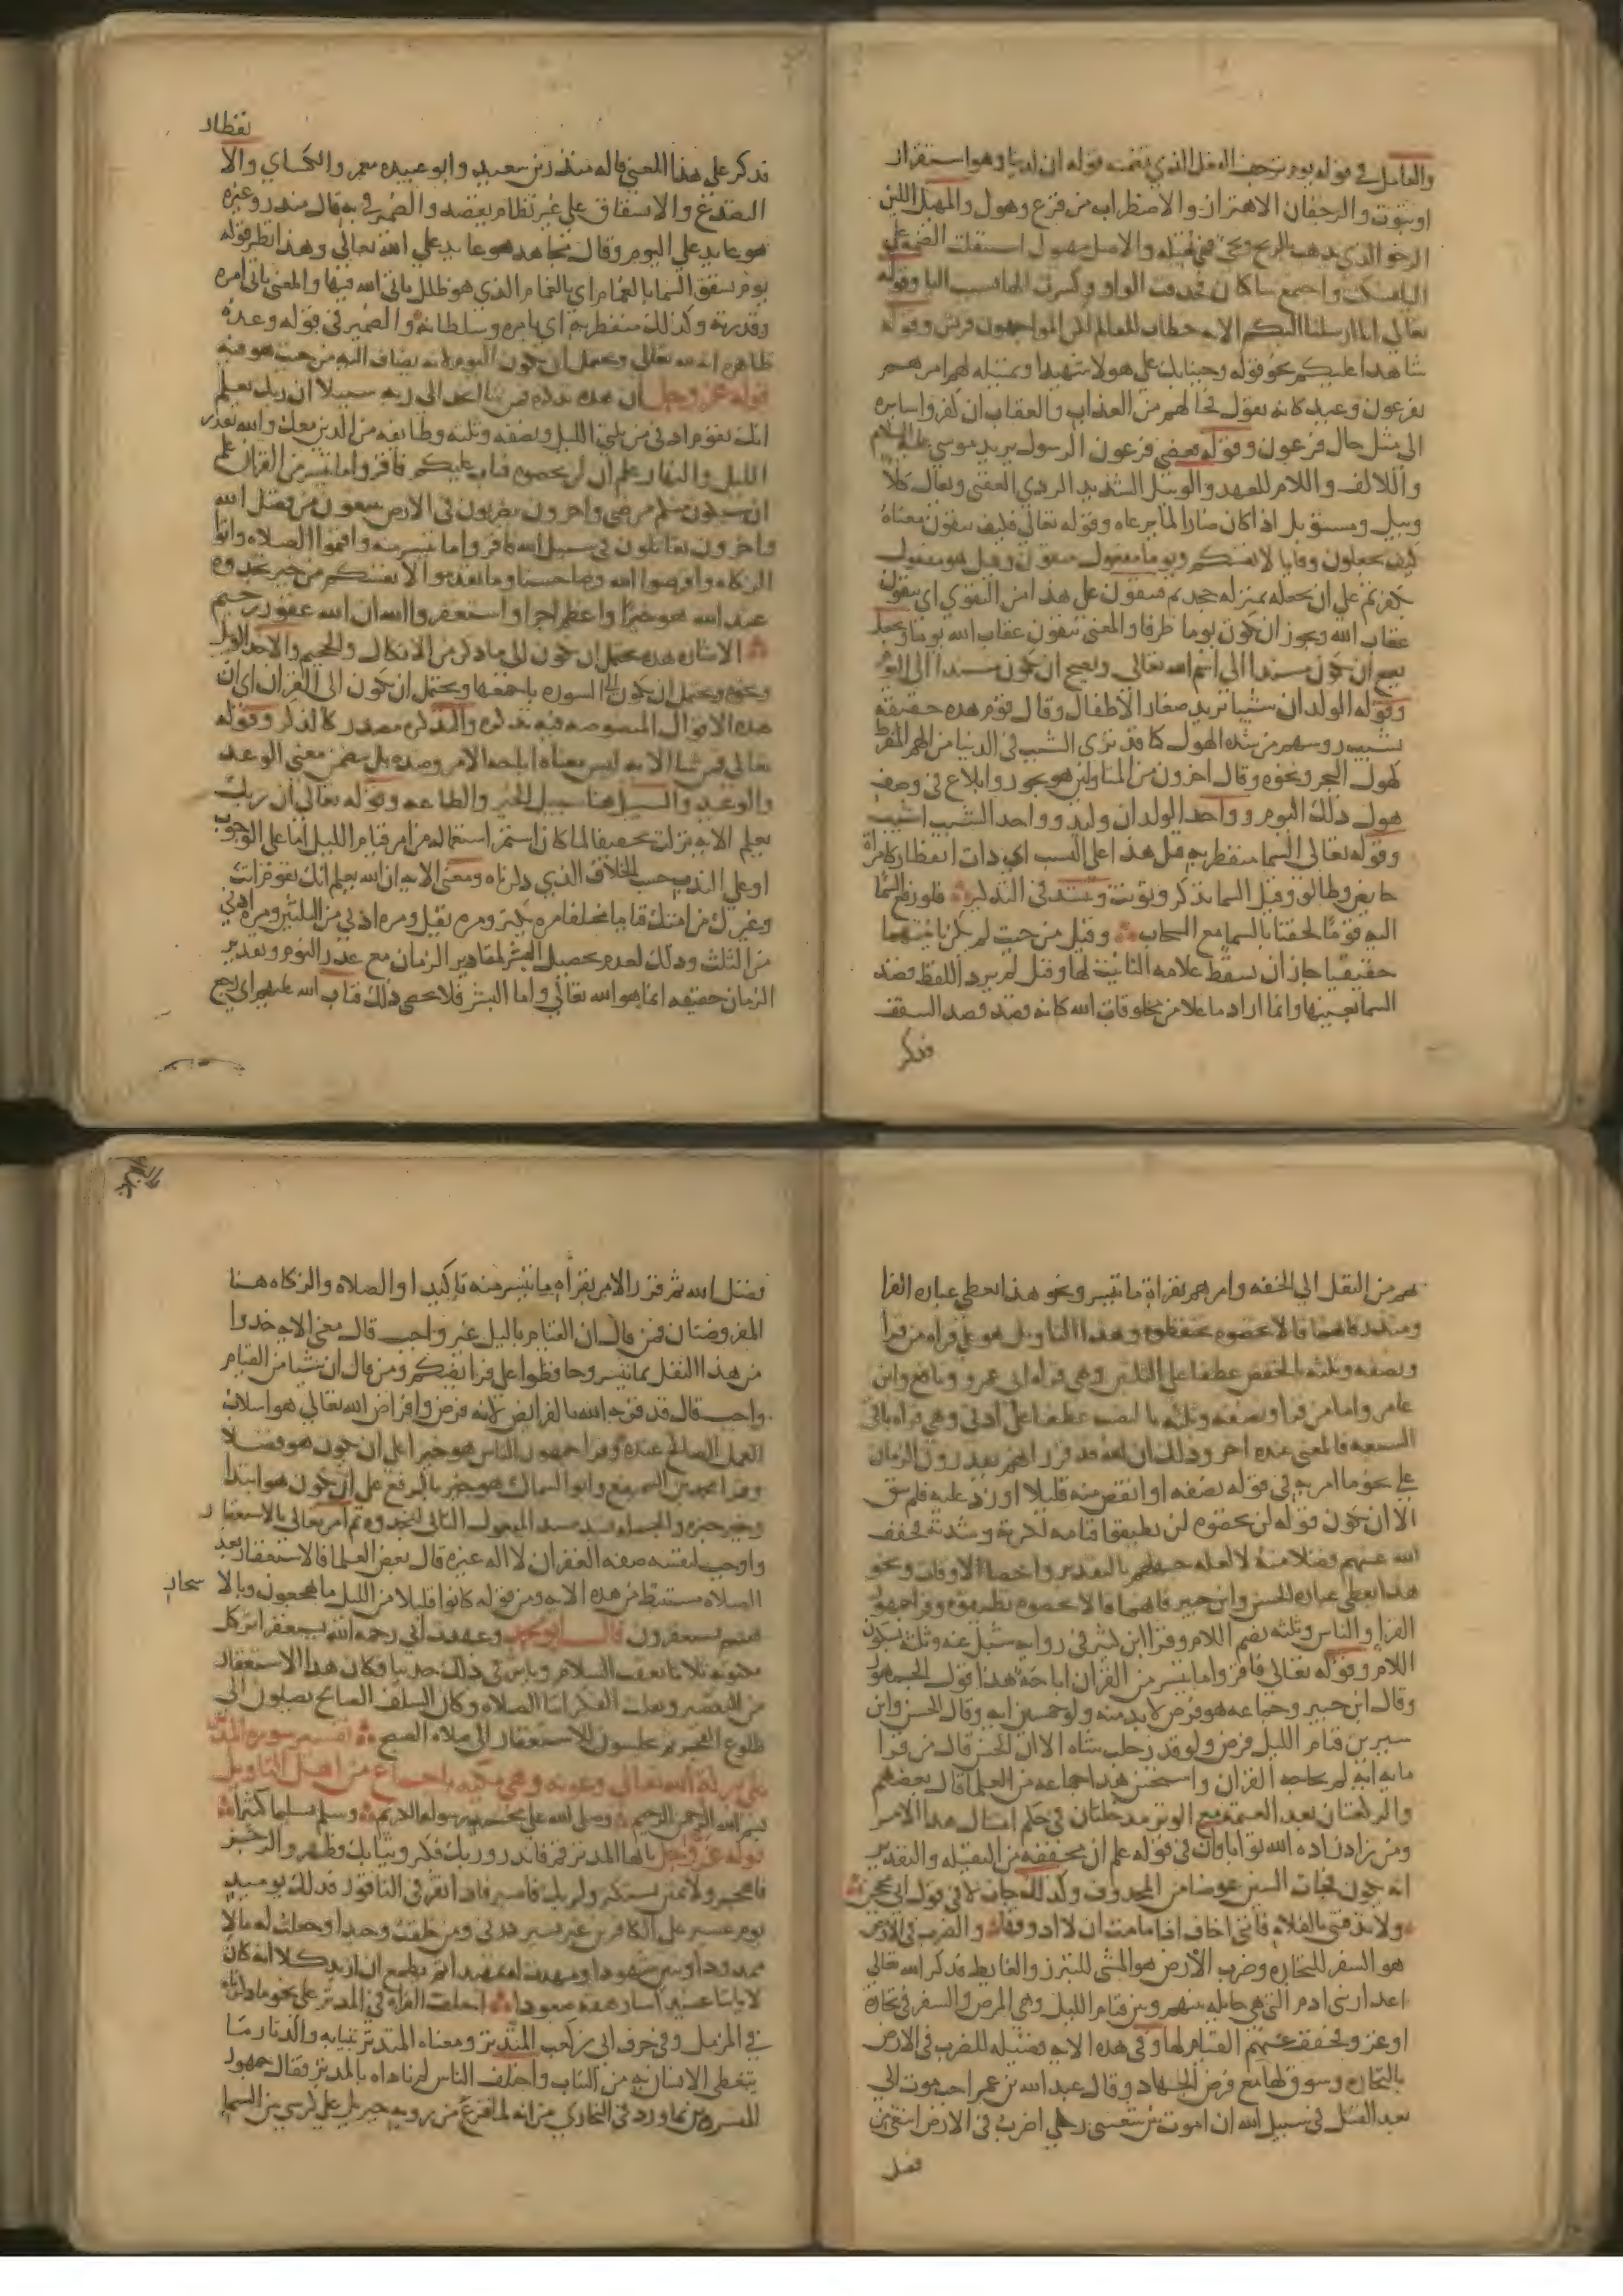 والعامل في قوله يوم ترجف الفعل الذي تضمنه قوله ان لدينا وهو استقرار
او ثبوت والرجفان الاهتزاز والاضطراب من فزع وهول والمهيل اللين
الرخو الذي يذهب بالريح والاصل مهيول استثقلت الضمة على
اليا فسكنت واجتمع ساكنان فحذفت الواو وكسرت الها بسبب اليا وقوله
تعالى انا ارسلنا اليكم الايه خطاب للعالم لكن المواجهون قريش وقوله
شاهدا عليكم نحو قوله وجينا بك على هولا شهيدا وتمثيله لهم امرهم
بفرعون وعيد كانه يقول فحالهم من العذاب والعقاب ان كفروا سايره
الى مثل حال فرعون وقوله فعصى فرعون الرسول يريد موسى عليه السلام
والالف واللام للعهد والوبيل الشديد الردي العقبى ويقال كلا
وبيل ومستوبل اذا كان ضارا لما يرعاه وقوله تعالى فكيف تتقون معناه
كيف تجعلون وقايا لانفسكم ويوما مفعول بتتقون وقيل هو مفعول
بكفرتم على ان يجعله بمنزله جحدتم فتتقون على هذا من التقوى اي تتقون
عقاب الله ويجوز ان يكون يوما ظرفا والمعنى تتقون عقاب الله يوما ويجعل
يصح ان يكون مسندا الى اسم الله تعالى ويصح ان يكون مسندا الى اليوم
وقوله الولدان شيبا يريد صغار الاطفال وقال قوم هذه حقيقه
تشيب روسهم من شده الهول كما قد ترى الشيب في الدنيا من الهم المفرط
كهول البحر ونحوه وقال اخرون من المتاولين هو تجوز وابلاغ في وصف
هول ذلك اليوم وواحد الولدان وليد وواحد الشيب اشيب
وقوله تعالى السما منفطر به قيل هذا على النسب اي ذات انفطار كامراة
حايض وطالق وقيل السما تذكر وتونث وينشد في التذكير فلو رفع السما
اليه قوما لحقنا بالسما مع السحاب وقيل من حيث لم يكن تانيثها
حقيقيا جاز ان تسقط علامه التانيث لها وقيل لم يرد اللفظ قصد
السما بعينها وانما اراد ما علا من مخلوقات الله كانه قصد قصد السقف
فذكر
فذكر على هذا المعنى قاله منذر بن سعيد وابو عبيده معمر والكساي والا
نفطار
التصدع والانشقاق على غير نظام بقصد والضمير في به قال منذر وغيره
هو عايد على اليوم وقال مجاهد هو عايد على الله تعالى وهذا نظير قوله
يوم تشقق السما بالغمام اي بالغمام الذي هو ظلل ياتي الله فيها والمعنى ياتي امره
وقدرته وكذلك منفطر به اي بامره وسلطانه والضمير في قوله وعده
ظاهره انه لله تعالى ويحتمل ان يكون لليوم لانه يضاف اليه من حيث هو فيه
قوله عز وجل ان هذه تذكره فمن شا اتخذ الى ربه سبيلا ان ربك يعلم
انك تقوم ادنى من ثلثي الليل ونصفه وثلثه وطايفه من الذين معك والله يقدر
الليل والنهار علم ان لن تحصوه فتاب عليكم فاقروا ما تيسر من القران علم
ان سيكون منكم مرضى واخرون يضربون في الارض يبتغون من فضل الله
واخرون يقاتلون في سبيل الله فاقروا ما تيسر منه واقيموا الصلاه واتوا
الزكاه واقرضوا الله قرضا حسنا وما تقدموا لانفسكم من خير تجدوه
عند الله هو خيرا واعظم اجرا واستغفروا الله ان الله غفور رحيم
الاشاره بهذه يحتمل ان يكون الى ما ذكر من الانكال والجحيم والاخذ الوبيل
ونحوه ويحتمل ان يكون الى السوره باجمعها ويحتمل ان يكون الى القران اي ان
هذه الاقوال المنصوصه فيه تذكره والتذكره مصدر كالذكر وقوله
تعالى فمن شا الايه ليس معناه اباحه الامر وضده بل يتضمن معنى الوعد
والوعيد والسبيل هنا سبيل الخير والطاعه وقوله تعالى ان ربك
يعلم الايه نزلت تخفيفا لما كان استمر استعماله من امر قيام الليل اما على الوجوب
او على الندب حسب الخلاف الذي ذكرناه ومعنى الايه ان الله يعلم انك تقوم انت
وغيرك من امتك قياما مختلفا مره يكثر ومره يقل ومره ادنى من الثلثين ومره ادنى
من الثلث وذلك لعدم تحصيل البشر لمقادير الزمان مع عذر النوم وتقدير
الزمان حقيقه انما هو لله تعالى واما البشر فلا يحصي ذلك فتاب الله عليهم اي رجع
بهم من الثقل الى الخفه وامرهم بقراة ما تيسر ونحو هذا تعطي عباره الفرا
ومنذر فانهما قالا تحصوه تحفظوه وهذا التاويل هو على قراه من قرا
ونصفه وثلثه بالخفض عطفا على الثلثين وهي قراه ابي عمرو ونافع وابن
عامر واما من قرا ونصفه وثلثه بالنصب عطفا على ادنى وهي قراه باقي
السبعه فالمعنى عنده اخر وذلك ان الله قد قرر انهم يقدرون الزمان
على نحو ما امر به في قوله نصفه او انقص منه قليلا او زد عليه فلم يبق
الا ان يكون قوله لن تحصوه لن تطيقوا قيامه لكثرته وشدته فخفف
الله عنهم فضلا منه لا لعله جهلهم بالتقدير واحصا الاوقات ونحو
هذا تعطي عباره الحسن وابن جبير فانهما قالا تحصوه تطيقوه وقرا جمهور
القرا والناس وثلثه بضم اللام وقرا ابن كثير في روايه شبل عنه وثلثه بسكون
اللام وقوله تعالى فاقروا ما تيسر من القران اباحة هذا قول الجمهور
وقال ابن جبير وجماعه هو فرض لابد منه ولو خمسين ايه وقال الحسن وابن
سيرين قيام الليل فرض ولو قدر حلب شاه الا ان الحسن قال من قرا
مايه ايه لم يحاجه القران واستحسن هذا جماعه من العلما قال بعضهم
والركعتان بعد العتمه مع الوتر مدخلتان في حكم امتثال هذا الامر
ومن زاد زاده الله ثوابا وان في قوله علم ان مخففه من الثقيله والتقدير
انه يكون فجات السين عوضا من المحذوف وكذلك جات لا في قول ابي محجن
ولا تدفنني بالفلاه فانني اخاف اذا ما مت ان لا اذوقها والضرب في الارض
هو السفر للتجاره وضرب الارض هو المشي للتبرز والغايط فذكر الله تعالى
اعذار بني ادم التي هي حايله بينهم وبين قيام الليل وهي المرض والسفر في تجارة
او غزو فخفف عنهم القيام لها وفي هذه الايه فضيله للضرب في الارض
بالتجاره وسوق لها مع فرض الجهاد وقال عبد الله بن عمر احب موت الي
بعد القتل في سبيل الله ان اموت بين شعبتي رحلي اضرب في الارض ابتغي من
فضل
فضل الله ثم قرر الامر بقراه ما تيسر منه تاكيدا والصلاه والزكاه هنا
المفروضتان فمن قال ان القيام بالليل غير واجب قال معنى الايه خذوا
من هذا النفل بما تيسر وحافظوا على فرايضكم ومن قال ان شيا من القيام
واجب قال قد قرنه الله بالفرايض لانه فرض واقراض الله تعالى هو اسلاف
العمل الصالح عنده وقرا جمهور الناس هو خيرا على ان يكون هو فصلا
وقرا محمد بن السميفع وابو السمال هو خير بالرفع على ان يكون هو ابتدا
وخير خبره والجمله تسد مسد المفعول الثاني لتجدوه ثم امر تعالى بالاستغفار
واوجب لنفسه صفه الغفران لا اله غيره قال بعض العلما فالاستغفار بعد
الصلاه مستنبط من هذه الايه ومن قوله كانوا قليلا من الليل ما يهجعون وبالا سحار
هم يستغفرون قال ابو محمد وعهدت ابي رحمه الله يستغفر اثر كل
مكتوبه ثلاثا بعقب السلام وياثر في ذلك حديثا وكان هذا الاستغفار
من التقصير وتفلت الفكر اثنا الصلاه وكان السلف الصالح يصلون الى
طلوع الفجر ثم يجلسون للاستغفار الى صلاه الصبح تفسير سوره المدثر
بحمد الله تعالى وعونه وهي مكيه باجماع من اهل التاويل
بسم الله الرحمن الرحيم وصلى الله على محمد رسوله الكريم وسلم تسليما كثيرا
قوله عز وجل يا ايها المدثر قم فانذر وربك فكبر وثيابك فطهر والرجز
فاهجر ولا تمنن تستكثر ولربك فاصبر فاذا نقر في الناقور فذلك يوميذ
يوم عسير على الكافرين غير يسير ذرني ومن خلقت وحيدا وجعلت له مالا
ممدودا وبنين شهودا ومهدت له تمهيدا ثم يطمع ان ازيد كلا انه كان
لاياتنا عنيدا سارهقه صعودا اختلف القراه في المدثر على نحو ما ذكرناه
في المزمل وفي حرف ابي بن كعب المتدثر ومعناه المتدثر بثيابه والدثار ما
يتغطى الانسان به من الثياب واختلف الناس لم ناداه بالمدثر فقال جمهور
المفسرين بما ورد في البخاري من انه لما فزع من رويه جبريل على كرسي بين السما